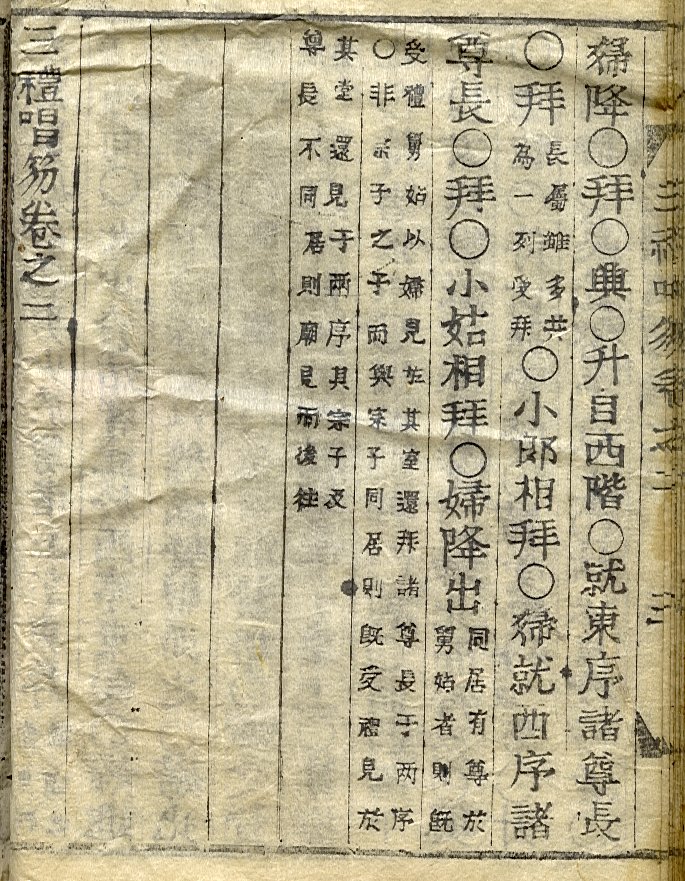 婦降○拜○興○升自西階○就東序諸尊長
○拜長屬雖多共為一列受拜○小郎相拜○婦就西序諸
尊長○拜○小姑相拜○婦降出同居有尊於舅姑者則既
受禮舅姑以婦見於其室還拜諸尊長于兩序
○非宗子之子而與宗子同居則既受禮見於
其堂還見于兩序其宗子及
尊長不同居則廟見而後往
三禮唱笏卷之二